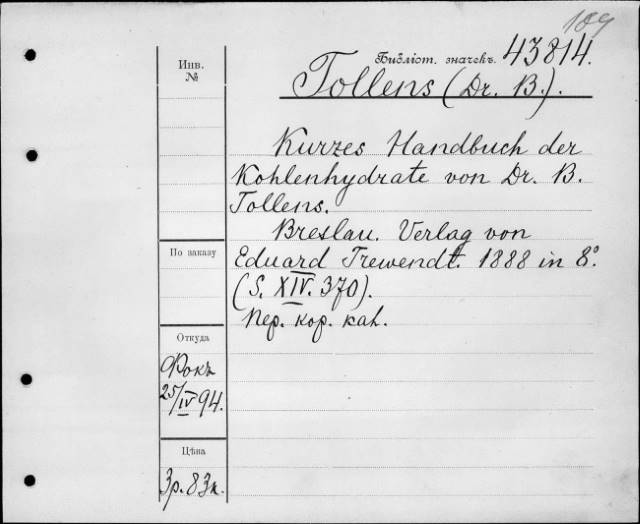 109
Инв.
№
Библіот. значекъ. 43814.
Tollens (Dr. B.).
Kurzes Handbuch der
Kohlenhydrate von Dr. B.
Tollens.
Breslau. Verlag von
По заказу
Eduard Trewendt. 1888 in 8°.
(S. XIV. 370).
Пер. кор. кал.
Откуда
Фокъ
25/IV 94.
Цѣна
3р. 83к.